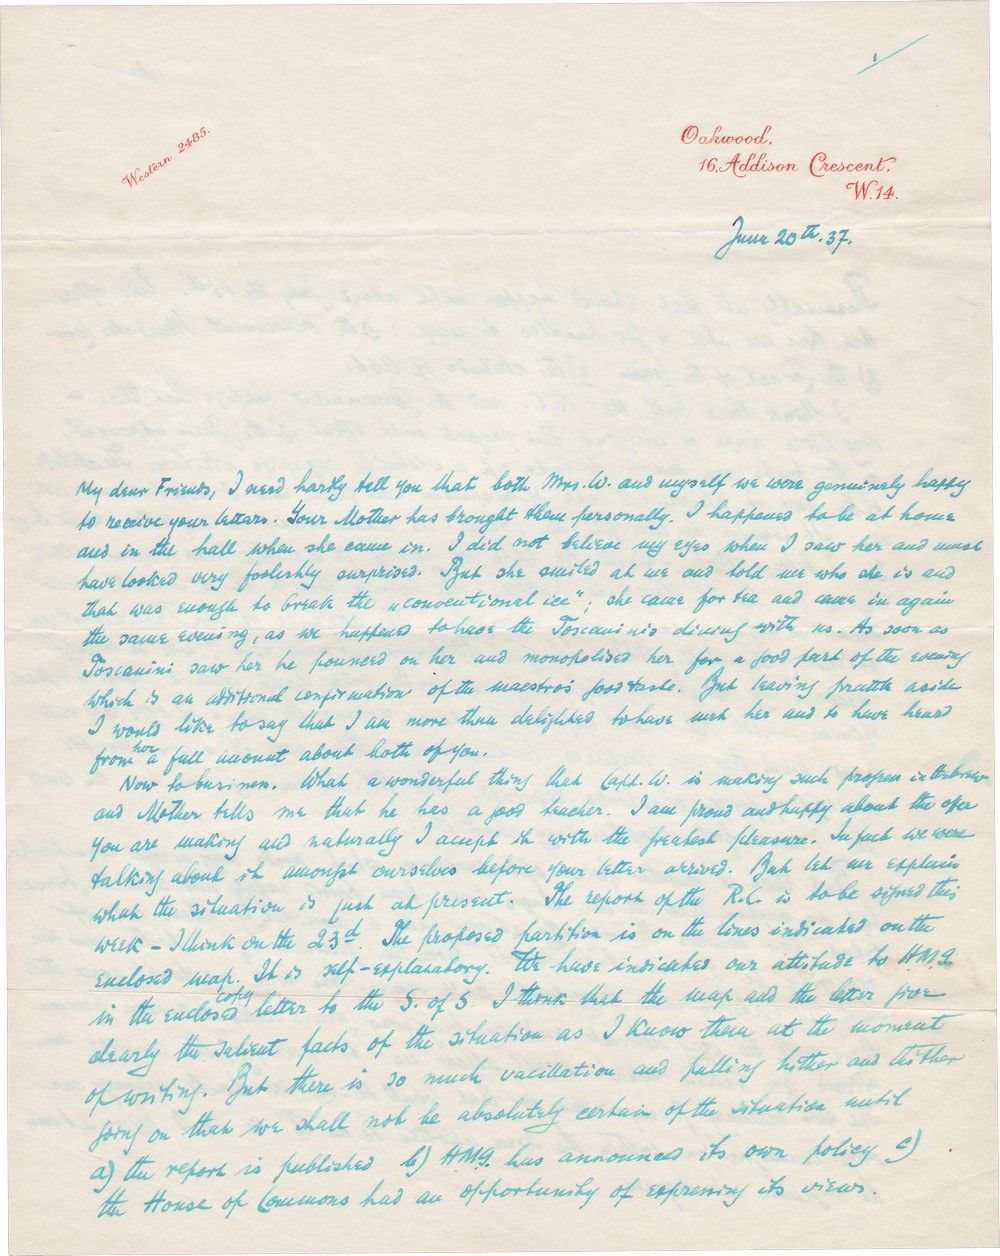 Western 2485.
Oakwood,
16, Addison Crescent,
W.14.
June 20th. 37.
My dear Friends, I need hardly tell you that both Mrs. W. and myself we were genuinely happy
to receive your letters. Your Mother has brought them personally. I happened to be at home
and in the hall when she came in. I did not believe my eyes when I saw her and must
have looked very foolishly surprised. But she smiled at me and told me who she is and
that was enough to break the „conventional ice“; she came for tea and came in again
the same evening, as we happened to have the Toscaninis dining with us. As soon as
Toscanini saw her he pounced on her and monopolised her for a good part of the evening
which is an additional confirmation of the maestro's good taste. But leaving prattle aside
I would like to say that I am more than delighted to have met her and to have heard
from her a full account about both of you.
Now to business. What a wonderful thing that Capt. W. is making such progress in Hebrew
and Mother tells me that he has a good teacher. I am proud and happy about the offer
you are making and naturally I accept it with the greatest pleasure. In fact we were
talking about it amongst ourselves before your letter arrived. But let me explain
what the situation is just at present. The report of the R.C. is to be signed this
week – I think on the 23d. The proposed partition is on the lines indicated on the
enclosed map. It is self-explanatory. We have indicated our attitude to H.M.G.
in the enclosed copy letter to the S. of S. I think that the map and the letter give
clearly the salient facts of the situation as I know them at the moment
of writing. But there is so much vacillation and pulling hither and thither
going on that we shall not be absolutely certain of the situation until
a) the report is published b) H.M.G. has announced its own policy c)
the House of Commons had an opportunity of expressing its views.